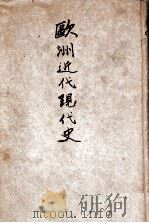 歐洲近代現代史